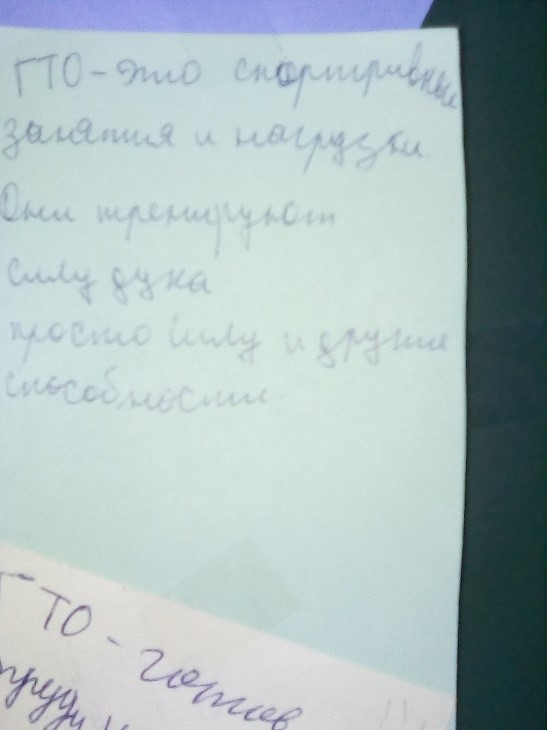 ГТО - это спортривные
занятия и нагрузки.
Они тренируют
силу духа
просто силу и другие
способности.
ГТО - готов
труду и